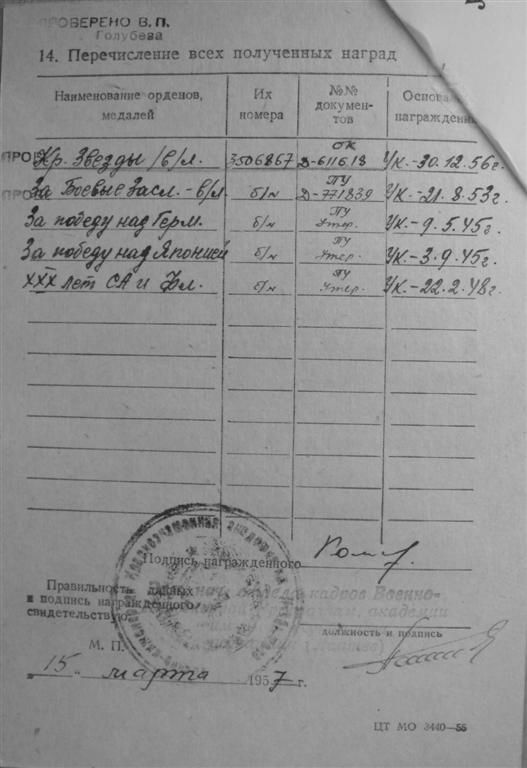 ПРОВЕРЕНО В. П.
Голубева
14. Перечисление всех полученных наград
Наименование орденов, медалей Их номера №№ документов Основа награждени
ПРОВ Кр. Звезды /в/л. 3506867 ОК Д-611618 Ук.-30.12.56г.
ПРОВ За Боевые Засл.-в/л б/н ПУ Д-771839 Ук.-21.8.53г.
За победу над Герм. б/н ПУ Утер. Ук.-9.5.45г.
За победу над Японией б/н ПУ Утер. Ук.-3.9.45г.
XXX лет СА и Фл. б/н ПУ Утер. Ук.-22.2.48г.
Подпись награжденного
Правильность данных
и подпись награжденного
свидетельствую:
отдела кадров Военно-
академии
должность и подпись
М. П.
„15„ марта 1957 г.
ЦТ МО 3440—55